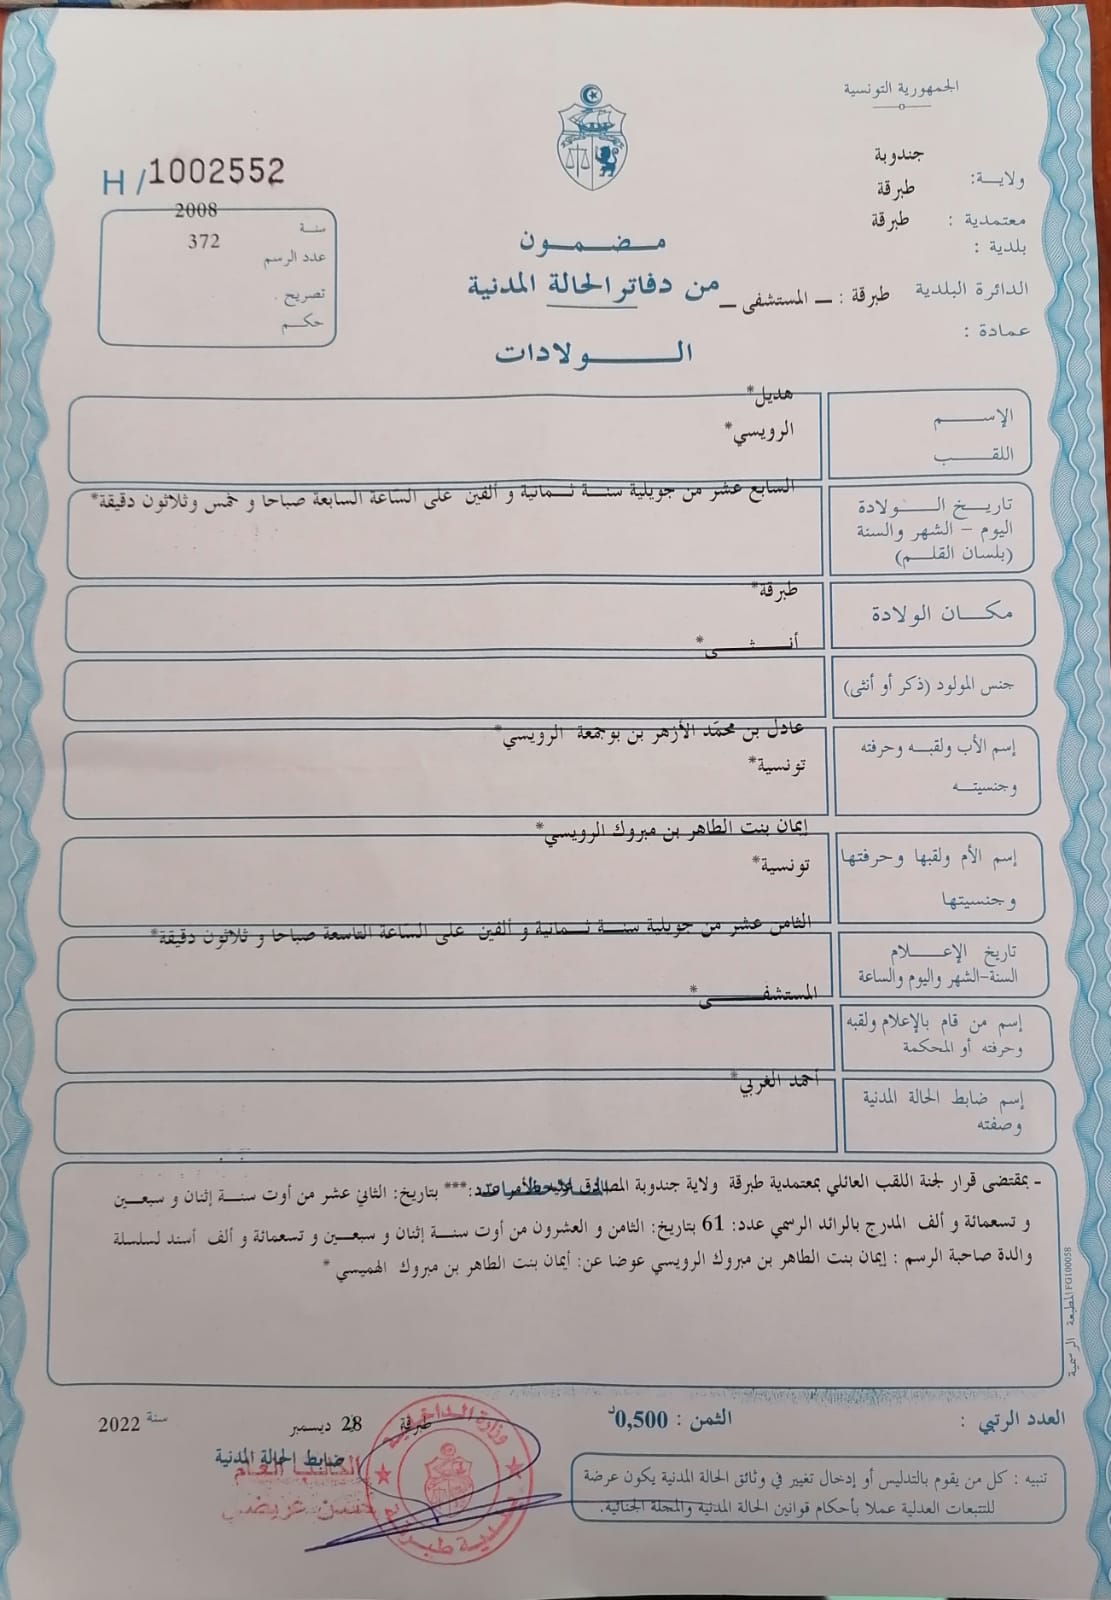 الجمهورية التونسية
ولاية: جندوبة
معتمدية : طبرقة
بلدية : طبرقة
الدائرة البلدية طبرقة : ــ المستشفى ــ
عمادة :
H/1002552
سنة 2008
عدد الرسم 372
تصريح
حكم
مضمون
من دفاتر الحالة المدنية
الولادات
الإسم هديل*
اللقب الرويسي*
تاريخ الولادة
اليوم - الشهر والسنة
(بلسان القلم)
السابع عشر من جويلية سنة ثمانية و ألفين على السّاعة السابعة صباحا و خمس وثلاثون دقيقة*
مكان الولادة طبرقة*
جنس المولود (ذكر أو أنثى) أنثى*
إسم الأب ولقبه وحرفته
وجنسيته
عادل بن محمّد الأزهر بن بوجمعة الرويسي*
تونسية*
إسم الأم ولقبها وحرفتها
وجنسيتها
إيمان بنت الطاهر بن مبروك الرويسي*
تونسية*
تاريخ الإعلام
السنة-الشهر واليوم والساعة
الثامن عشر من جويلية سنة ثمانية و ألفين على السّاعة التاسعة صباحا و ثلاثون دقيقة*
إسم من قام بالإعلام ولقبه
وحرفته أو المحكمة
المستشفى*
إسم ضابط الحالة المدنية
وصفته
أحمد الغربي*
- بمقتضى قرار لجنة اللقب العائلي بمعتمدية طبرقة ولاية جندوبة عدد:*** بتاريخ: الثاني عشر من أوت سنة إثنان و سبعين
و تسعمائة و ألف المدرج بالرائد الرسمي عدد: 61 بتاريخ: الثامن و العشرون من أوت سنة إثنان و سبعين و تسعمائة و ألف أسند لسلسلة
والدة صاحبة الرسم : إيمان بنت الطاهر بن مبروك الرويسي عوضا عن: أيمان بنت الطاهر بن مبروك الهميسي *
المطبعة الرسمية FG100058
العدد الرتبي :
الثمن : 0,500د
طبرقة 28 ديسمبر سنة 2022
ضابط الحالة المدنية
تنبيه : كل من يقوم بالتدليس أو إدخال تغيير في وثائق الحالة المدنية يكون عرضة
للتتبعات العدلية عملا بأحكام قوانين الحالة المدنية والمجلة الجنائية.